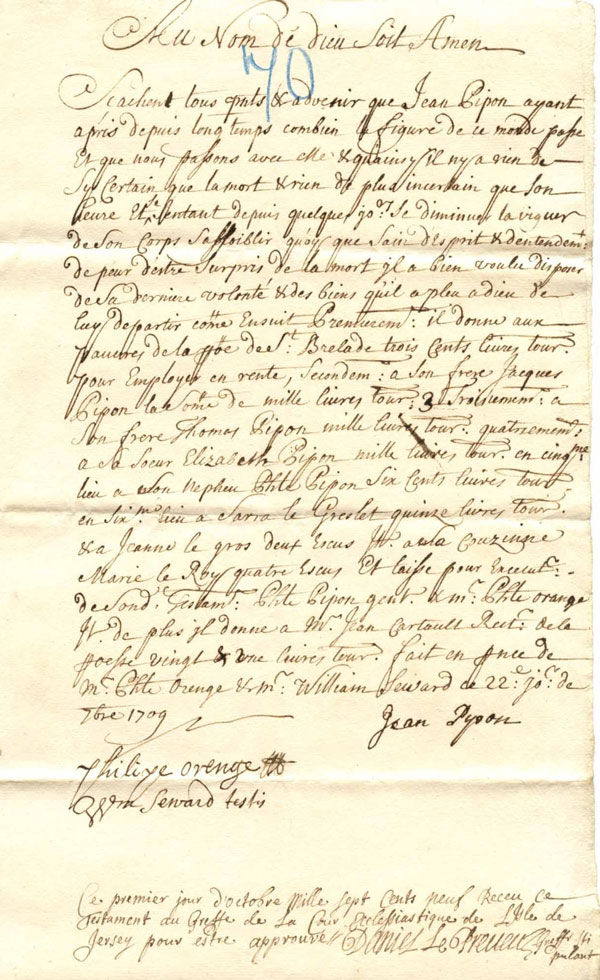 Au Nom de dieu Soit Amen
70
Scachent tous pnts & advenir que Jean Pipon ayant
apris depuis long temps combien la figure de ce monde passe
Et que nous passons avec elle & quainsy il ny a rien de
Sy Certain que la mort & rien de plus incertain que son
heure Et Se sentant depuis quelque jors Se diminuer la viguer
de Son Corps Saffoiblir quoy que Sain desprit & dentendemt:
de peur destre Surpris de la mort jl a bien voulu disposer
de Sa derniere volonté & des biens qu'il a pleu a dieu de
luy departir come Ensuit Premieremt: il donne aux
pauvres de la pse de St: Brelade trois Cents livres tour:
pour Employer en rente, Secondemt: a Son frere Jacques
Pipon la Some de mille livres tour: 3 Troisiement: a
Son frere Thomas Pipon mille livres tour: quatriement:
a Sa Soeur Elizabeth Pipon mille livres tour: en cinqme
lieu a son Nepheu Phle Pipon Six Cents livres tour
en Sixme lieu a Sarra le Greslet quinze livres tour:
& a Jeanne le gros deux Escus It: a Sa Couzinne
Marie le Roy quatre Escus Et laisse pour Execut:
de Sond: testamt: Phle Pipon gent: & mr: Phle orange
It: de plus jl donne a Mr: Jean Cartault Rectr: de la
psse vingt & une livres tour: fait en pnce de
Mr: Phle Orenge & mr: William Seward ce 22e: jor: de
7bre 1709
Jean Pypon
Philipe orenge
Wm Seward testis
Ce premier jour d'octobre Mille sept Cents neuf Receu ce
Testament au Greffe de La Cour Ecclesiastique de L'Isle de
Jersey pour estre approuvé Daniel Le Breuen Greffr sti
pulant